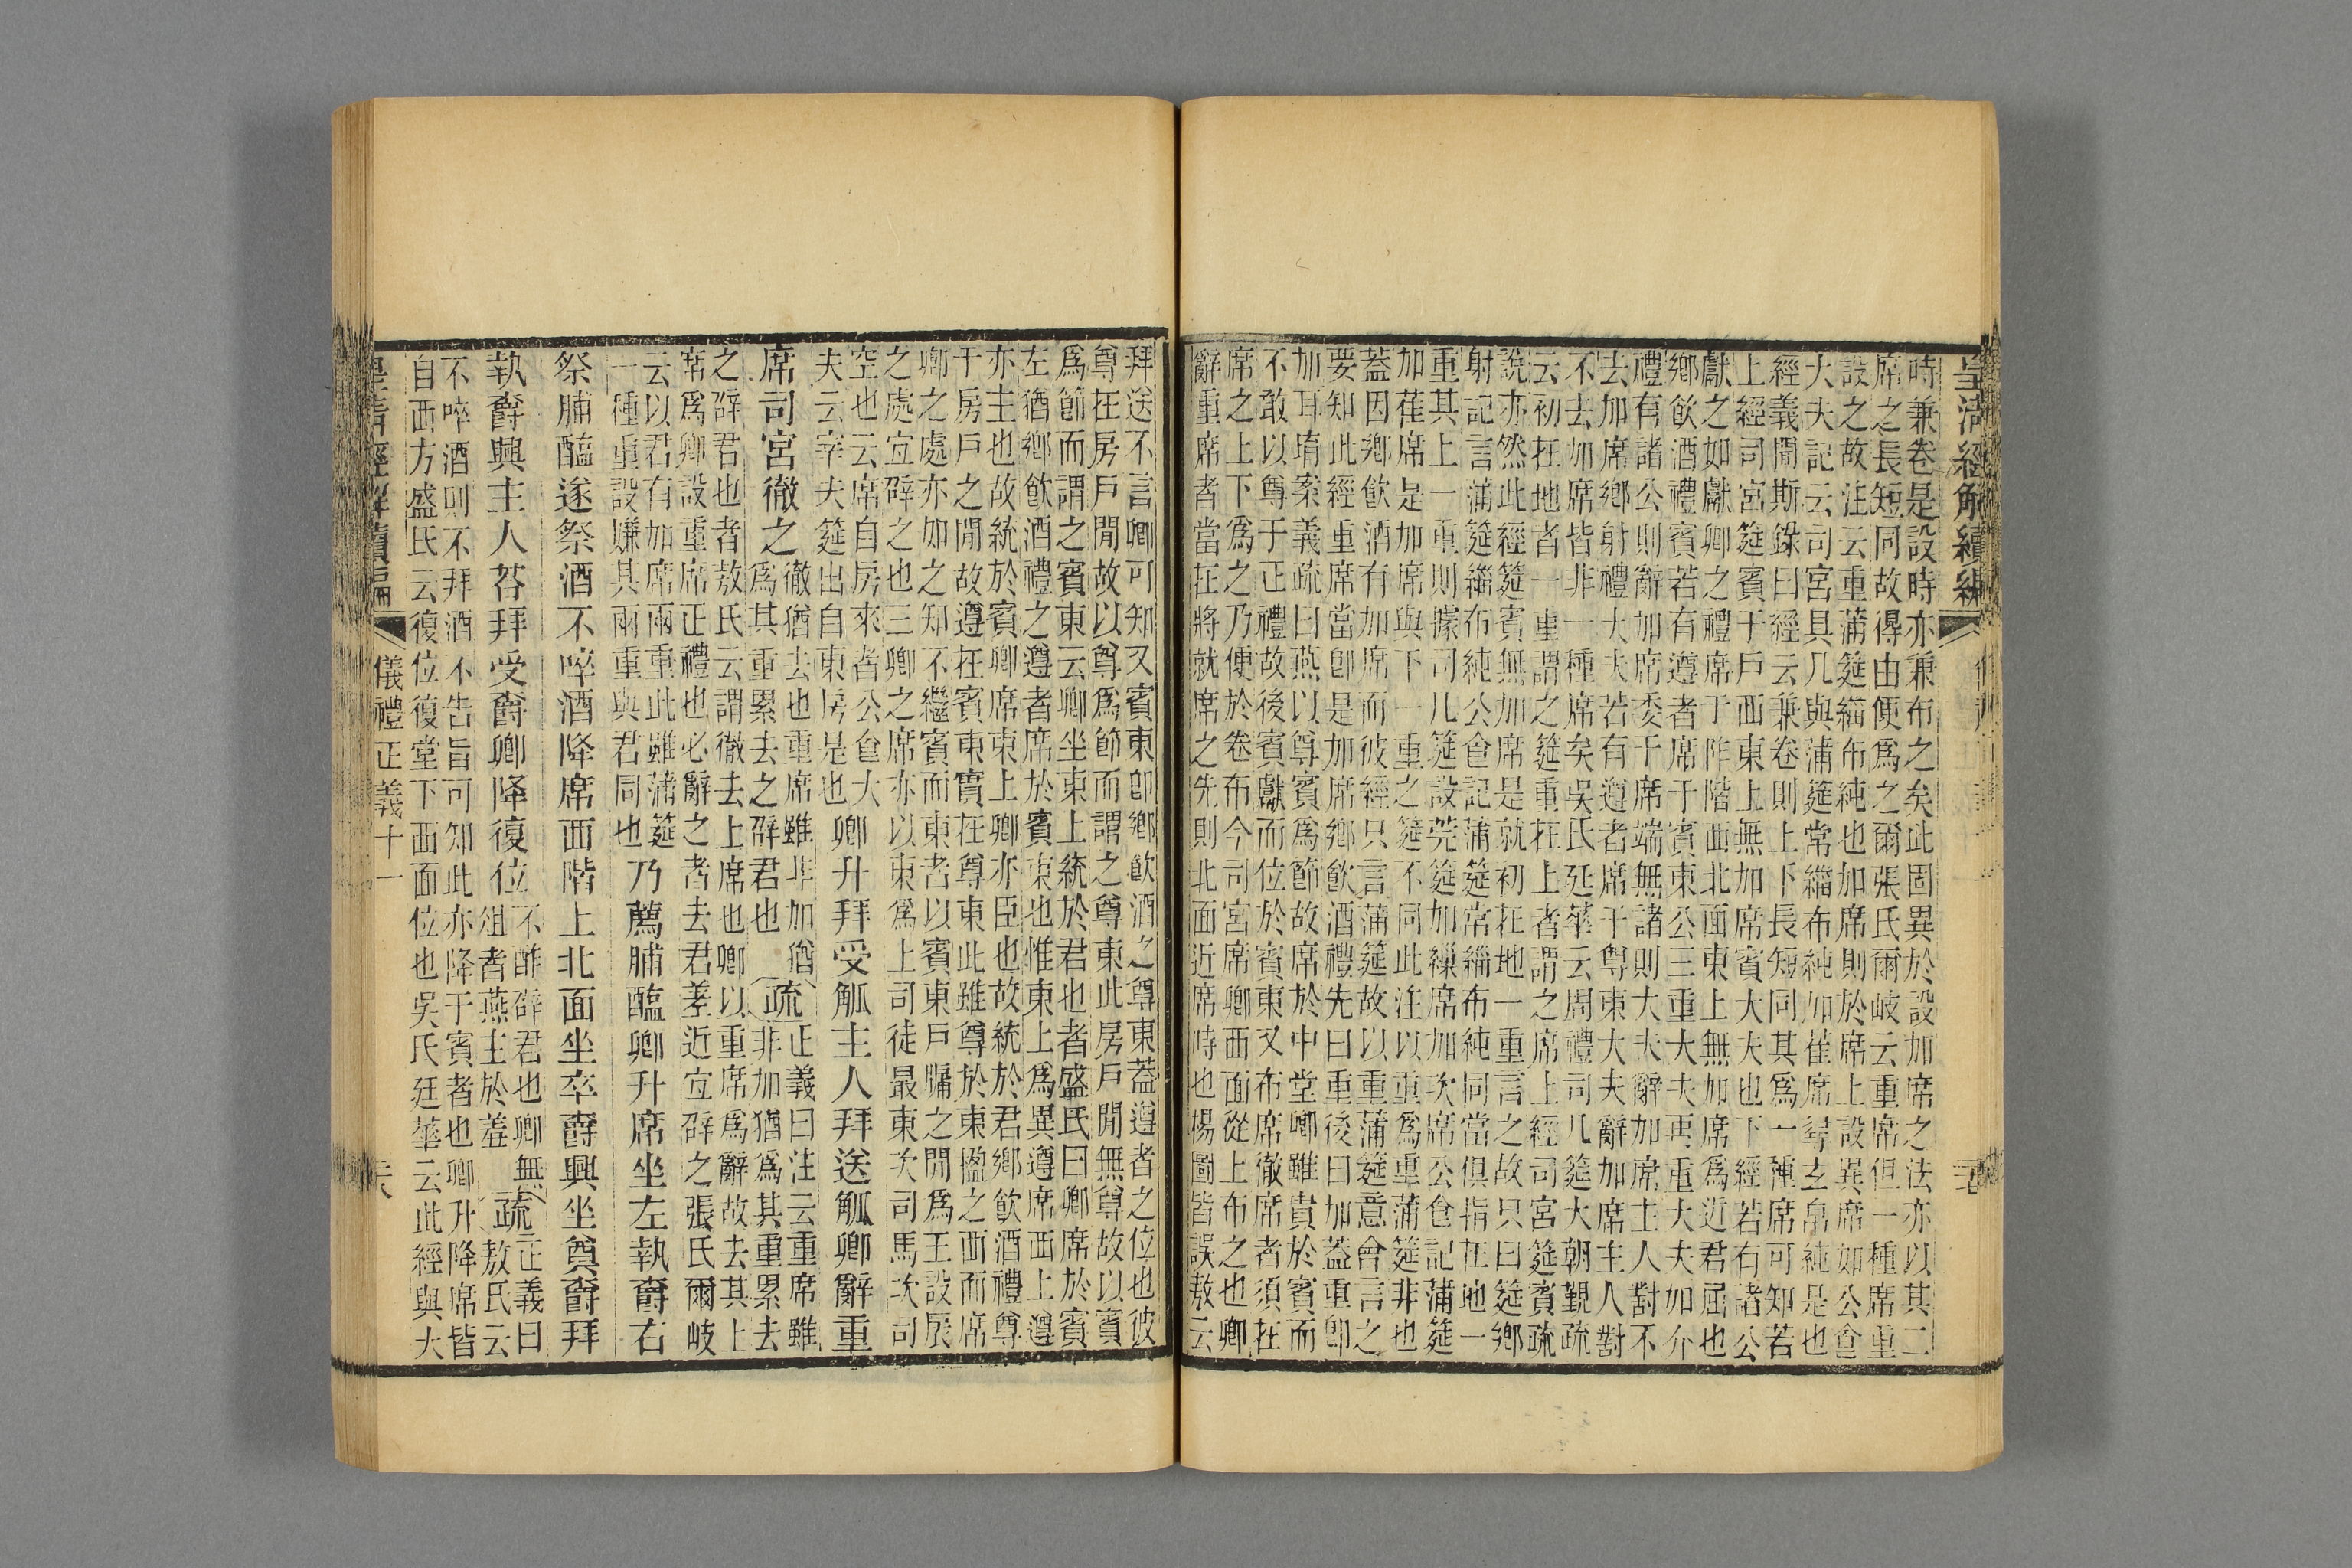 皇清經解續編
時兼卷是設時亦兼布之矣此固異於設加席之法亦以其二
席之長短同故得由便爲之爾張氏爾岐云重席但一種席重
設之故注云重蒲筵緇布純也加席則於席上設異席如公食
大夫記云司宮具几與蒲筵常緇布純加萑席尋玄帛純是也
經義聞斯錄曰經云兼卷則上下長短同其爲一種席可知若
上經司宮筵賓于戶西東上無加席賓大夫也下經若有諸公
獻之如獻卿之禮席于阼階西北面東上無加席爲近君屈也
鄉飲酒禮賓若有遵者席于賓東公三重大夫再重大夫如介
禮有諸公則辭加席委于席端無諸則大夫辭加席主人對不
去加席鄉射禮大夫若有遵者席于尊東大夫辭加席主人對
不去加席皆非一種席矣吳氏廷華云周禮司几筵大朝覲疏
云初在地者一重謂之筵重在上者謂之席上經司宮筵賓疏
說亦然此經筵賓無加席是就初在地一重言之故只曰筵鄉
射記言蒲筵緇布純公食記蒲筵常緇布純同當但指在地一
重其上一重則據司几筵設莞筵加繅席加次席公食記蒲筵
加萑席是加席與下一重之筵不同此注以重爲重蒲筵非也
蓋因鄉飲酒有加席而彼經只言蒲筵故以重蒲筵意會言之
要知此經重席當卽是加席鄉飲酒禮先曰重後曰加蓋重卽
加耳堉案義疏曰燕以尊賓爲節故席於中堂卿雖貴於賓而
不敢以尊于正禮故後賓獻而位於賓東又布席徹席者須在
席之上下爲之乃便於卷布今司宮席卿西面從上布之也卿
辭重席者當在將就席之先則北面近席時也楊圖皆誤敖云
拜送不言卿可知又賓東卽鄉飲酒之尊東蓋遵者之位也彼
尊在房戶閒故以尊爲節而謂之尊東此房戶閒無尊故以賓
爲節而謂之賓東云卿坐東上統於君也者盛氏曰卿席於賓
左猶鄉飲酒禮之遵者席於賓東也惟東上爲異遵席西上遵
亦主也故統於賓卿席東上卿亦臣也故統於君鄉飲酒禮尊
于房戶之閒故遵在賓東實在尊東此雖尊於東楹之西而席
卿之處亦如之知不繼賓而東者以賓東戶牖之閒爲王設扆
之處宜辟之也三卿之席亦以東爲上司徒最東次司馬次司
空也云席自房來者公食大
夫云宰夫筵出自東房是也
卿升拜受觚主人拜送觚卿辭重
席司宮徹之
徹猶去也重席雖非加猶
爲其重累去之辟君也
疏
正義曰注云重席雖
非加猶爲其重累去
之辟君也者敖氏云謂徹去上席也卿以重席爲辭故去其上
席爲卿設重席正禮也必辭之者去君差近宜辟之張氏爾岐
云以君有加席兩重此雖蒲筵
一種重設嫌其兩重與君同也
乃薦脯醢卿升席坐左執爵右
祭脯醢遂祭酒不啐酒降席西階上北面坐卒爵興坐奠爵拜
執爵興主人荅拜受爵卿降復位
不酢辟君也卿無
俎者燕主於羞
疏
正義曰
敖氏云
不啐酒則不拜酒不告旨可知此亦降于賓者也卿升降席皆
自西方盛氏云復位復堂下西面位也吳氏廷華云此經與大
皇清經解續編
儀禮正義十一